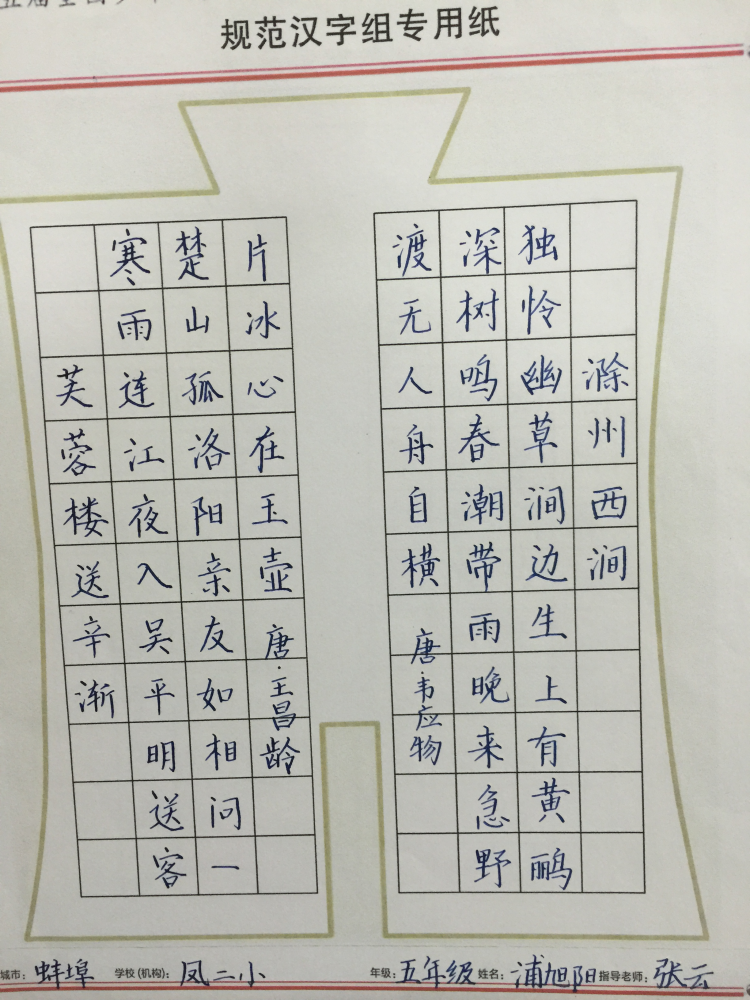 规范汉字组专用纸
滁州西涧
独怜幽草涧边生上有黄鹂
深树鸣春潮带雨晚来急野
渡无人舟自横 唐·韦应物
芙蓉楼送辛渐
寒雨连江夜入吴平明送客
楚山孤洛阳亲友如相问一
片冰心在玉壶 唐·王昌龄
城市：蚌埠 学校(机构)：凤二小 年级：五年级 姓名：浦旭阳 指导老师：张云